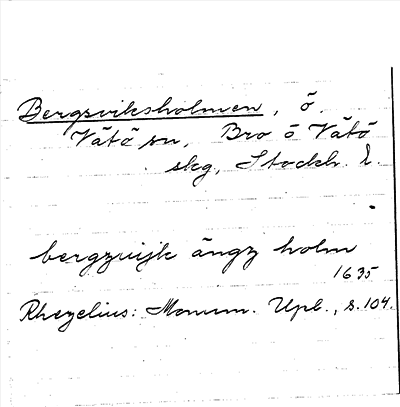 Bergsviksholmen, ö
Vätö sn, Bro o Vätö
skg, Stockh. l.
bergzuijk ängz holm
1635
Rhezelius: Monum. Upl., s. 104.